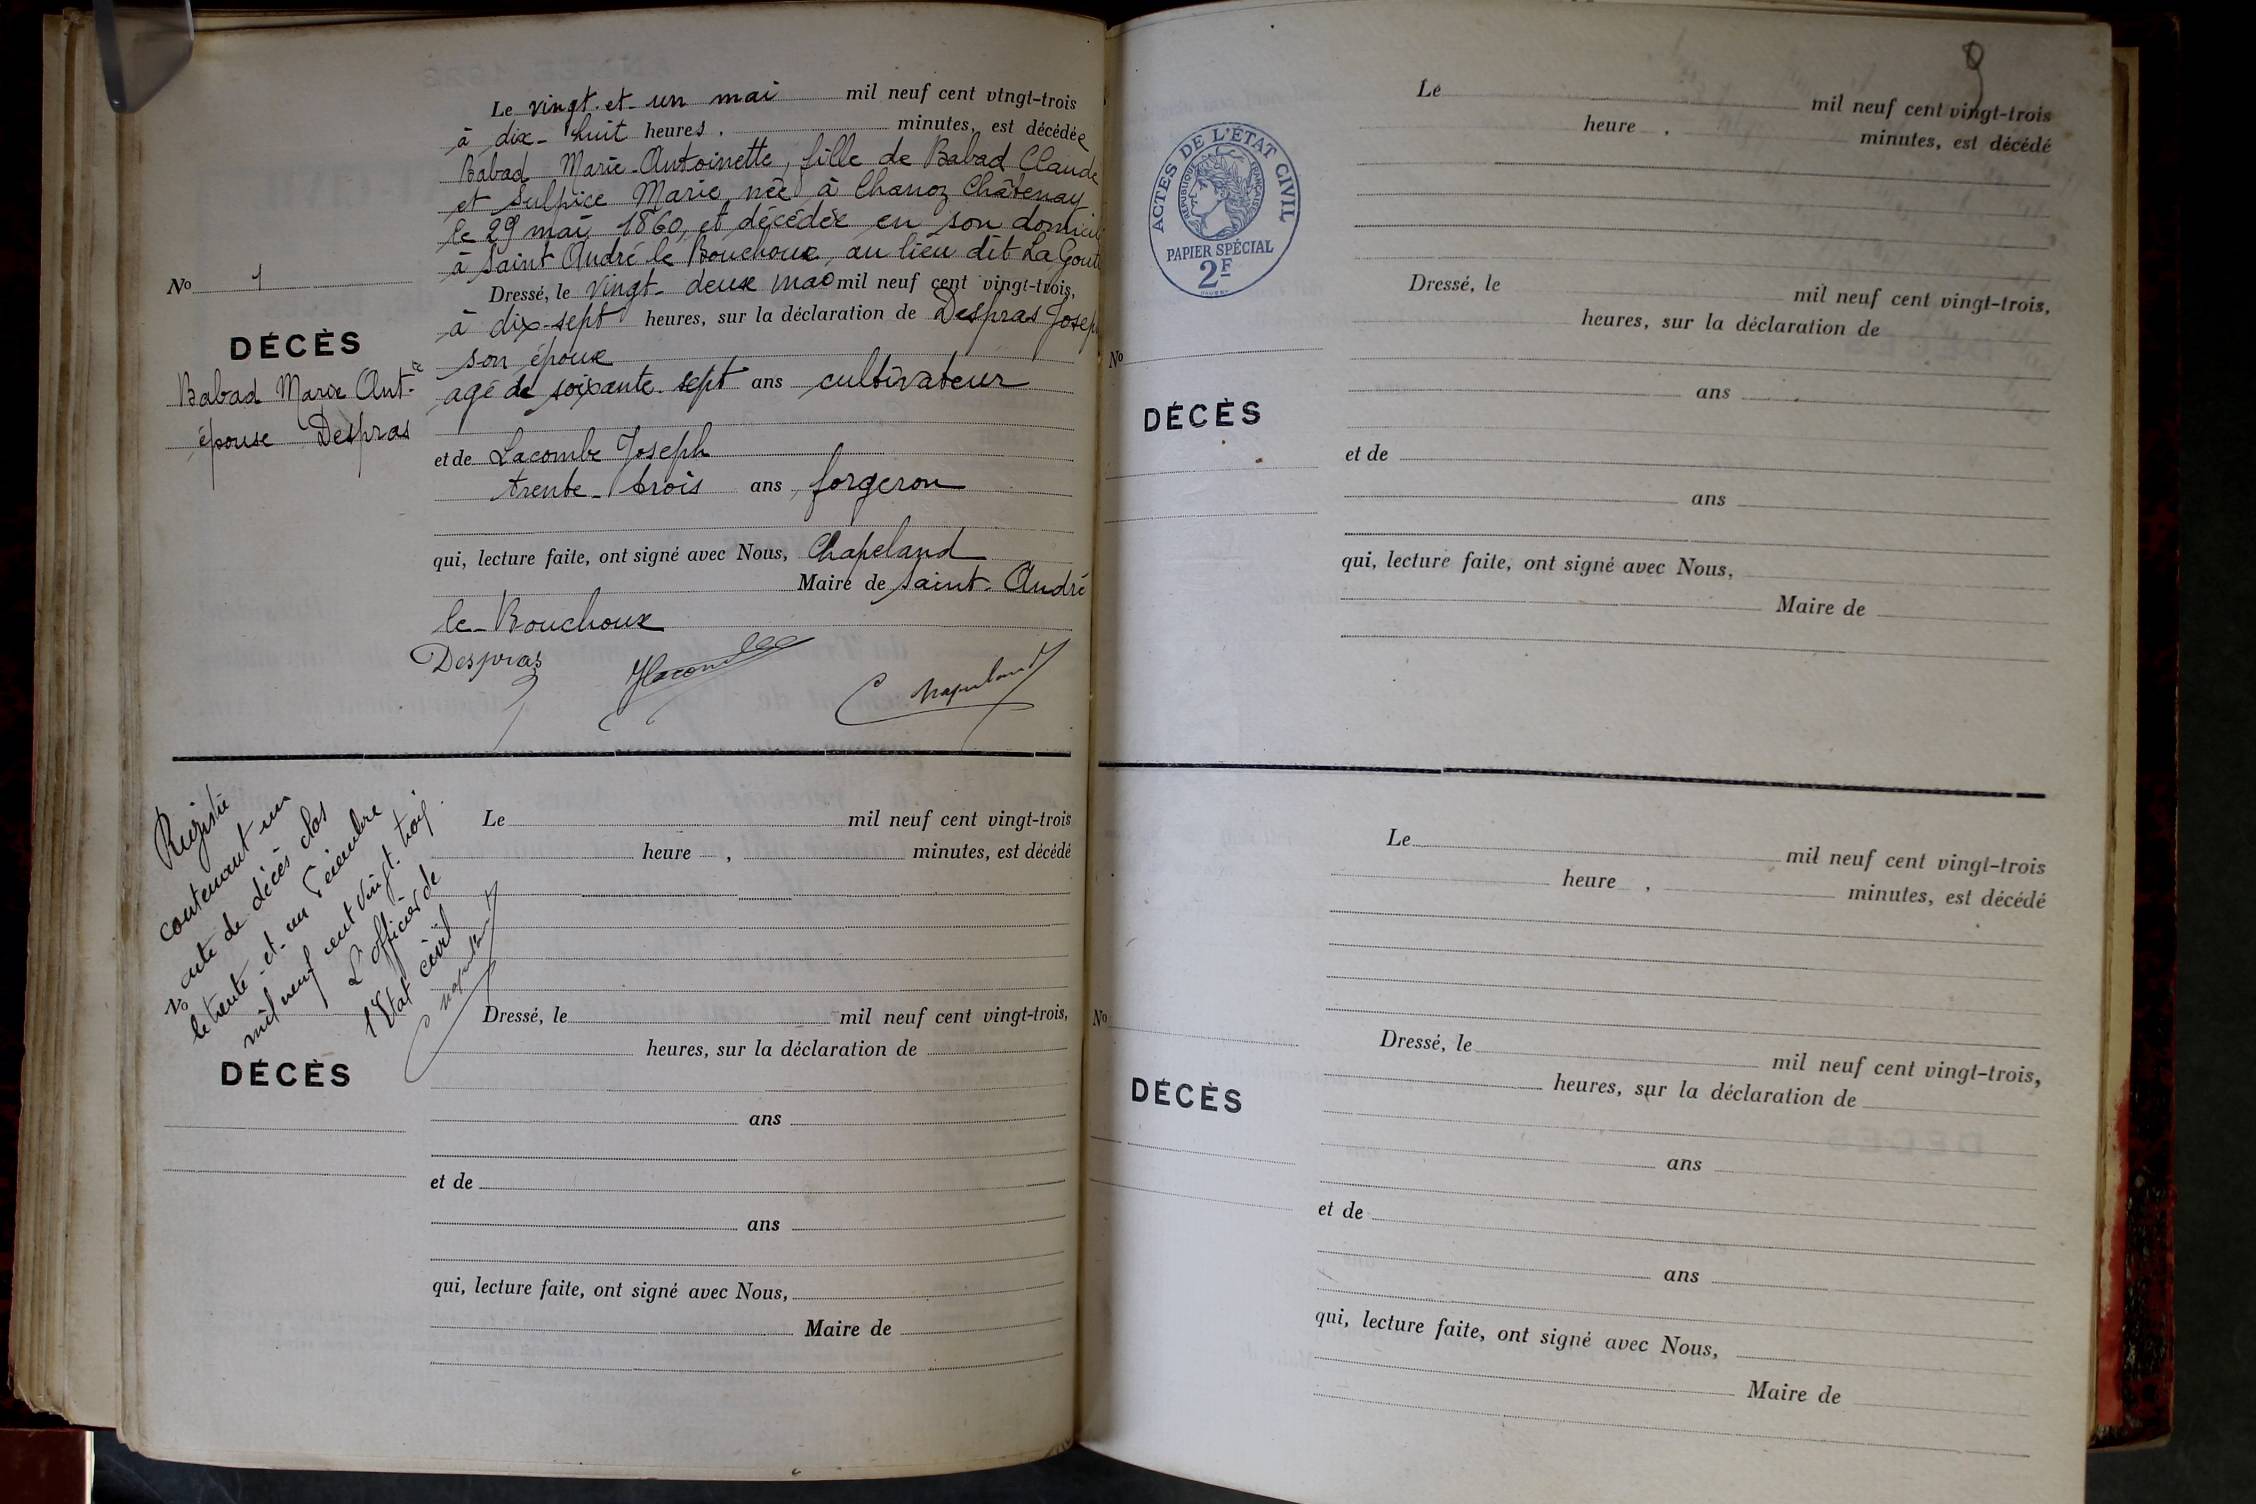 Le vingt-et-un mai mil neuf cent vingt-trois
à dix-huit heures, minutes, est décédée
Babad Marie-Antoinette, fille de Babad Claude
et Sulpice Marie, née à Chanoz Châtenay
le 29 mai 1860, et décédée en son domicil
à Saint André le Bouchoux, au lieu dit La Gout
Dressé, le vingt-deux mai mil neuf cent vingt-trois,
à dix-sept heures, sur la déclaration de Despras Josep
son époux
agé de soixante sept ans cultivateur
et de Lacombe Joseph
trente-trois ans, forgeron
qui, lecture faite, ont signé avec Nous, Chapeland
Maire de Saint-André
le-Bouchoux
Despras JLacombe Chapeland
No 1
DÉCÈS
Babad Marie Ant.te
épouse Despras
Registre
contenant un
acte de décès clos
le trente-et-un Décembre
mil neuf cent vingt-trois.
L'officier de
l'Etat civil
Chapeland
No
DÉCÈS
Le mil neuf cent vingt-trois
heure , minutes, est décédé
Dressé, le mil neuf cent vingt-trois,
heures, sur la déclaration de
ans
et de
ans
qui, lecture faite, ont signé avec Nous,
Maire de
9
ACTES DE L'ÉTAT CIVIL
RÉPUBLIQUE FRANÇAISE
PAPIER SPÉCIAL
2F
No
DÉCÈS
Le mil neuf cent vingt-trois
heure , minutes, est décédé
Dressé, le mil neuf cent vingt-trois,
heures, sur la déclaration de
ans
et de
ans
qui, lecture faite, ont signé avec Nous,
Maire de
No
DÉCÈS
Le mil neuf cent vingt-trois
heure , minutes, est décédé
Dressé, le mil neuf cent vingt-trois,
heures, sur la déclaration de
ans
et de
ans
qui, lecture faite, ont signé avec Nous,
Maire de